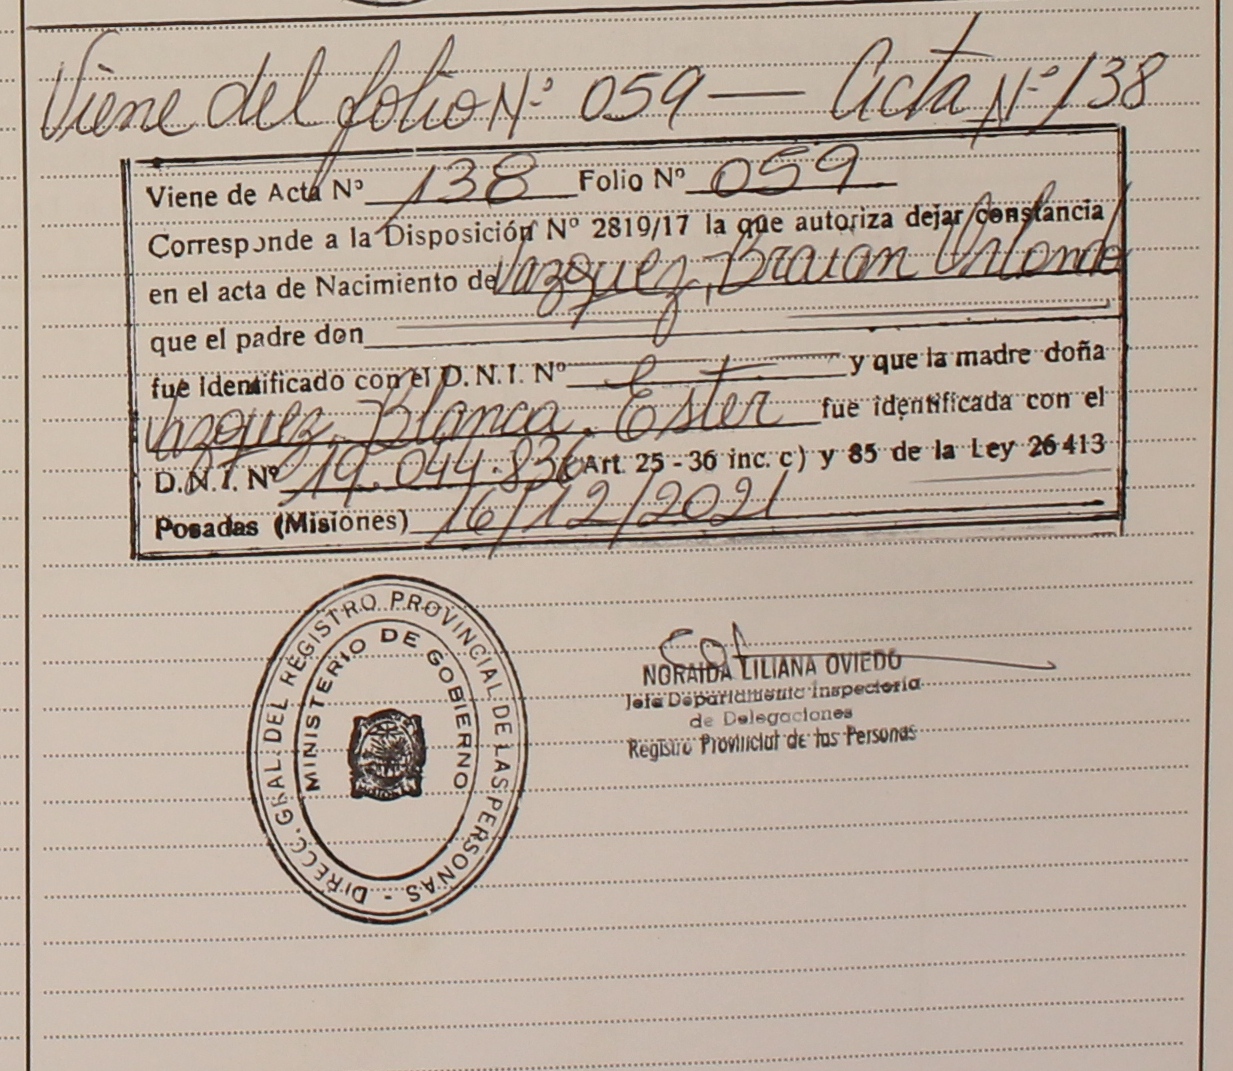 Viene del folio Nº 059 — Acta Nº 138
Viene de Acta Nº 138 Folio Nº 059
Corresponde a la Disposición Nº 2819/17 la que autoriza dejar constancia
en el acta de Nacimiento de Vazquez, Braian Orlando
que el padre don
fue identificado con el D.N.I. Nº y que la madre doña
Vazquez, Blanca Ester fue identificada con el
D.N.I. Nº 19.044.836 (Art. 25 - 36 inc. c) y 85 de la Ley 26413
Posadas (Misiones) 16/12/2021
DIRECC. GRAL. DEL REGISTRO PROVINCIAL DE LAS PERSONAS -
MINISTERIO DE GOBIERNO
NORAIDA LILIANA OVIEDO
Jefa Departamento Inspectoria
de Delegaciones
Registro Provincial de las Personas